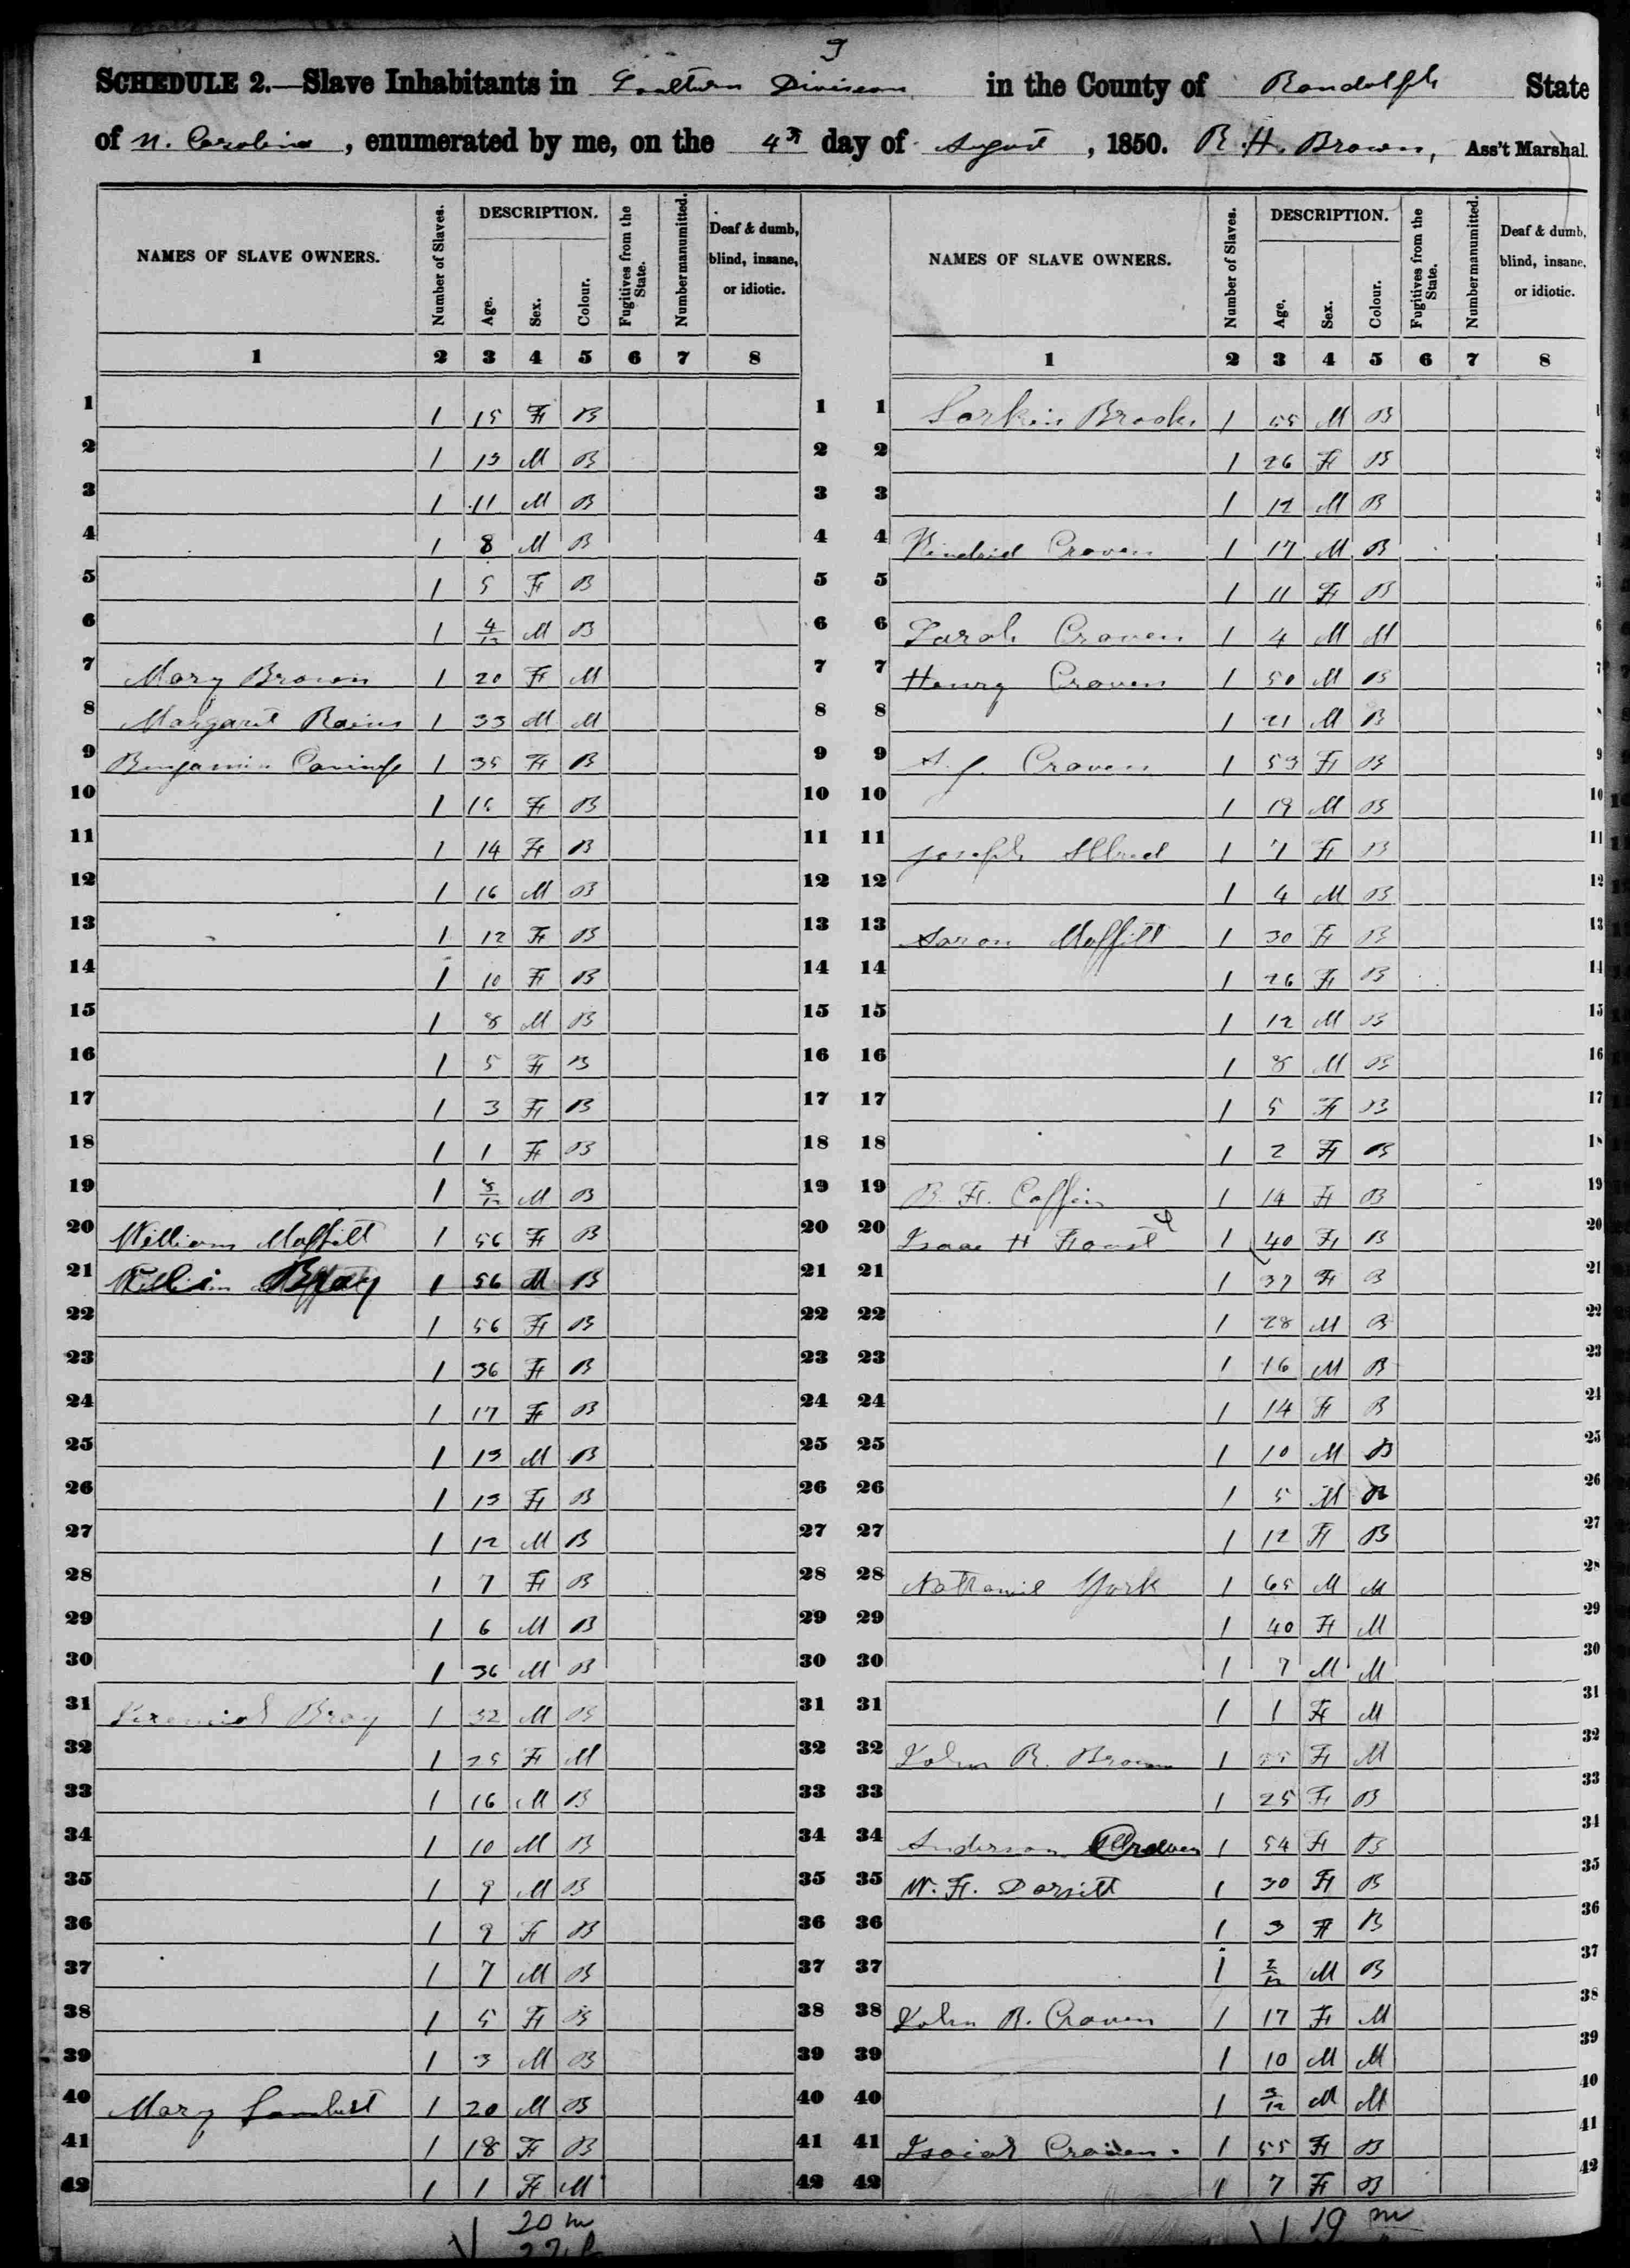 9
SCHEDULE 2.—Slave Inhabitants in Southern Division in the County of Randolph State
of N. Carolina, enumerated by me, on the 4th day of August, 1850. R. H. Brown, Ass't Marshal.
NAMES OF SLAVE OWNERS. Number of Slaves. DESCRIPTION. Age. Sex. Colour. Fugitives from the State. Number manumitted. Deaf & dumb, blind, insane, or idiotic. NAMES OF SLAVE OWNERS. Number of Slaves. DESCRIPTION. Age. Sex. Colour. Fugitives from the State. Number manumitted. Deaf & dumb, blind, insane, or idiotic.
1 2 3 4 5 6 7 8 1 2 3 4 5 6 7 8
1 1 15 F B 1 1 Larkin Brooks 1 55 M B 1
2 1 13 M B 2 2 1 26 F B 2
3 1 11 M B 3 3 1 12 M B 3
4 1 8 M B 4 4 Kindrid Craven 1 17 M B 4
5 1 5 F B 5 5 1 11 F B 5
6 1 4/12 M B 6 6 Sarah Craven 1 4 M M 6
7 Mary Brown 1 20 F M 7 7 Henry Craven 1 50 M B 7
8 Margaret Rains 1 33 M M 8 8 1 21 M B
9 Benjamin 1 35 F B 9 9 Craven 1 53 F B 9
10 1 F B 10 10 1 19 M B 10
11 1 14 F B 11 11 Joseph Allred 1 7 F B 11
12 1 16 M B 12 12 1 4 M B 12
13 1 12 F B 13 13 Aaron Moffitt 1 30 F B 13
14 1 10 F B 14 14 1 26 F B 14
15 1 8 M B 15 15 1 12 M B 15
16 1 5 F B 16 16 1 8 M B 16
17 1 3 F B 17 17 1 5 F B 17
18 1 1 F B 18 18 1 2 F B 18
19 1 M B 19 19 B. F. Coffin 1 14 F B 19
20 William Moffitt 1 56 F B 20 20 Isaac H Foust 1 40 F B 20
21 William Bray 1 56 M B 21 21 1 37 F B 21
22 1 56 F B 22 22 1 28 M B 22
23 1 36 F B 23 23 1 16 M B 23
24 1 17 F B 24 24 1 14 F B 24
25 1 13 M B 25 25 1 10 M B 25
26 1 13 F B 26 26 1 5 M B 26
27 1 12 M B 27 27 1 12 F B 27
28 1 7 F B 28 28 Nathaniel York 1 65 M M 28
29 1 6 M B 29 29 1 40 F M 29
30 1 36 M B 30 30 1 7 M M 30
31 Jeremiah Bray 1 32 M B 31 31 1 1 F M 31
32 1 25 F M 32 32 John R. Brown 1 F M 32
33 1 16 M B 33 33 1 25 F B 33
34 1 10 M B 34 34 Anderson Craven 1 54 F B 34
35 1 9 M B 35 35 W. F. Dorsitt 1 30 F B 35
36 1 9 F B 36 36 1 3 F B 36
37 1 7 M B 37 37 1 2/12 M B 37
38 1 5 F B 38 38 John B. Craven 1 17 F M 38
39 1 3 M B 39 39 1 10 M M 39
40 Mary Lambert 1 20 M B 40 40 1 M M 40
41 1 18 F B 41 41 Isaiah Craven 1 55 F B 41
42 1 1 F M 42 42 1 7 F B 42
20 m 19 m
22 f